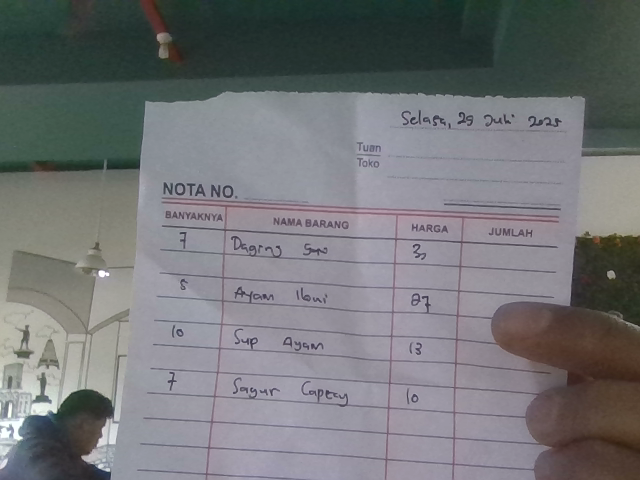 Selasa, 29 Juli 2025
Tuan
Toko
NOTA NO.
BANYAKNYA NAMA BARANG HARGA JUMLAH
7 Daging
5 Ayam 27
10 Sup Ayam 13
7 Sayur Capcay 10